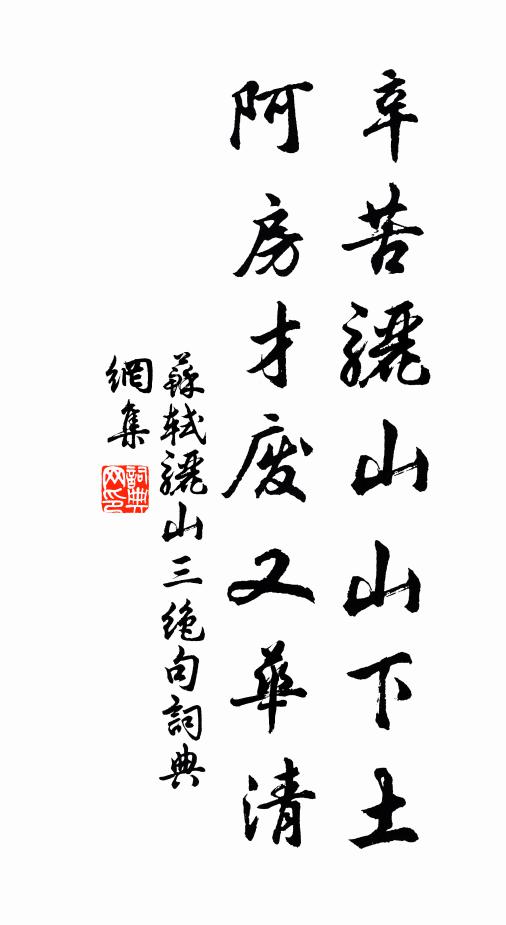 辛苦驪山山下土
阿房才废又華清
蘇軾驪山三绝句詞典
網集
詞典网印